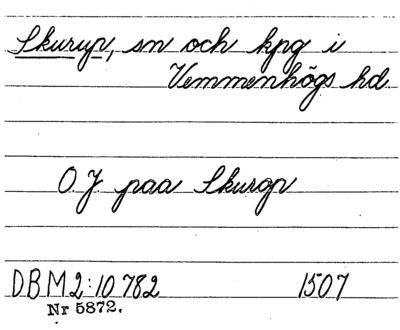 Skurup, sn och kpg i
Vemmenhögs hd.
O. J. paa Skurop
DBM 2:10 782 1507
Nr 5872.